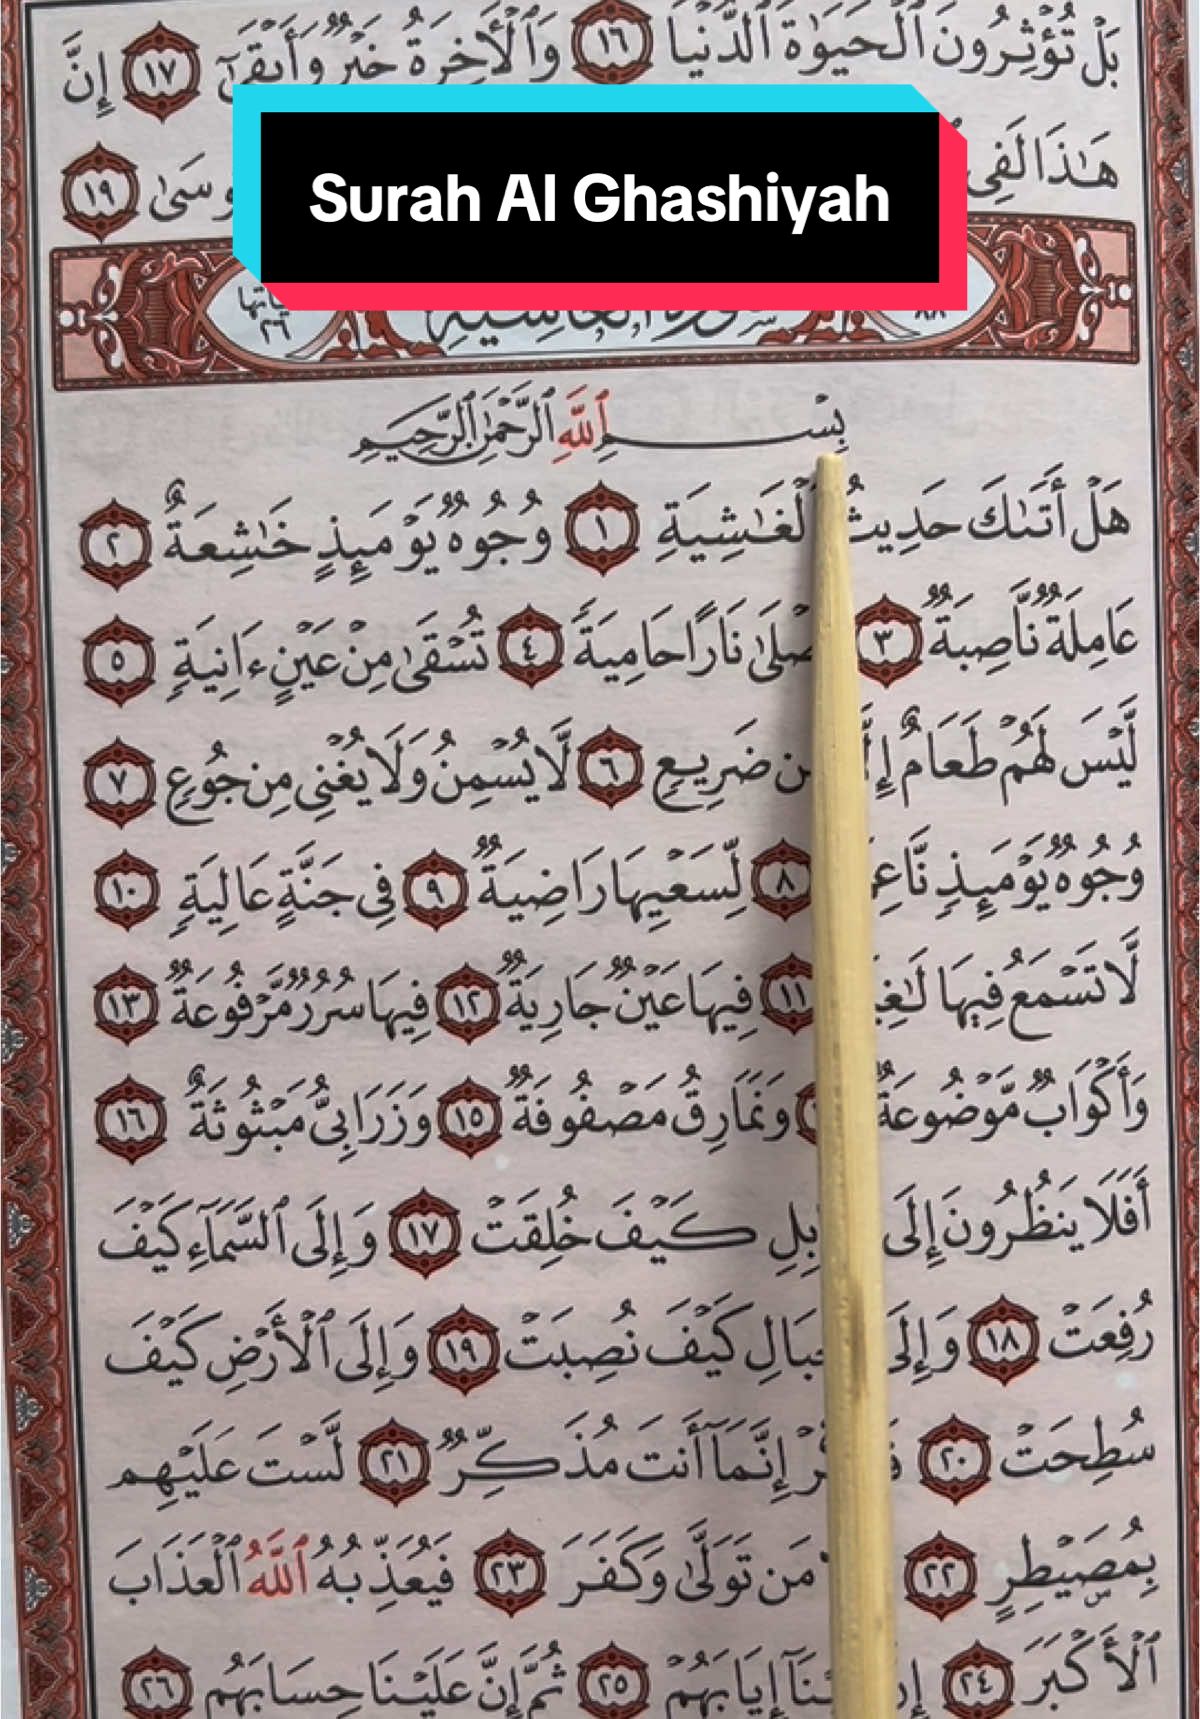 بَلْ تُؤْثِرُونَ ٱلْحَيَوٰةَ ٱلدُّنْيَا ١٦ وَٱلْأَخِرَةُ خَيْرٌ وَأَبْقَىٰٓ ١٧ إِنَّ
هَـٰذَا لَفِى ١٩
Surah Al Ghashiyah
٢٦ ٨٨
سُورَةُ ٱلْغَاشِيَةِ
بِسْمِ ٱللَّهِ ٱلرَّحْمَـٰنِ ٱلرَّحِيمِ
هَلْ أَتَىٰكَ حَدِيثُ ٱلْغَـٰشِيَةِ ١ وُجُوهٌ يَوْمَئِذٍ خَـٰشِعَةٌ ٢
عَامِلَةٌ نَّاصِبَةٌ ٣ نَارًا حَامِيَةً ٤ تُسْقَىٰ مِنْ عَيْنٍ ءَانِيَةٍ ٥
لَّيْسَ لَهُمْ طَعَامٌ ضَرِيعٍ ٦ لَّا يُسْمِنُ وَلَا يُغْنِى مِن جُوعٍ ٧
وُجُوهٌ يَوْمَئِذٍ ٨ لِّسَعْيِهَا رَاضِيَةٌ ٩ فِى جَنَّةٍ عَالِيَةٍ ١٠
لَّا تَسْمَعُ فِيهَا ١١ فِيهَا عَيْنٌ جَارِيَةٌ ١٢ فِيهَا سُرُرٌ مَّرْفُوعَةٌ ١٣
وَأَكْوَابٌ مَّوْضُوعَةٌ وَنَمَارِقُ مَصْفُوفَةٌ ١٥ وَزَرَابِىُّ مَبْثُوثَةٌ ١٦
أَفَلَا يَنظُرُونَ إِلَى كَيْفَ خُلِقَتْ ١٧ وَإِلَى ٱلسَّمَآءِ كَيْفَ
رُفِعَتْ ١٨ وَإِلَى كَيْفَ نُصِبَتْ ١٩ وَإِلَى ٱلْأَرْضِ كَيْفَ
سُطِحَتْ ٢٠ إِنَّمَآ أَنتَ مُذَكِّرٌ ٢١ لَّسْتَ عَلَيْهِم
بِمُصَيْطِرٍ ٢٢ مَن تَوَلَّىٰ وَكَفَرَ ٢٣ فَيُعَذِّبُهُ ٱللَّهُ ٱلْعَذَابَ
ٱلْأَكْبَرَ ٢٤ إِيَابَهُمْ ٢٥ ثُمَّ إِنَّ عَلَيْنَا حِسَابَهُم ٢٦